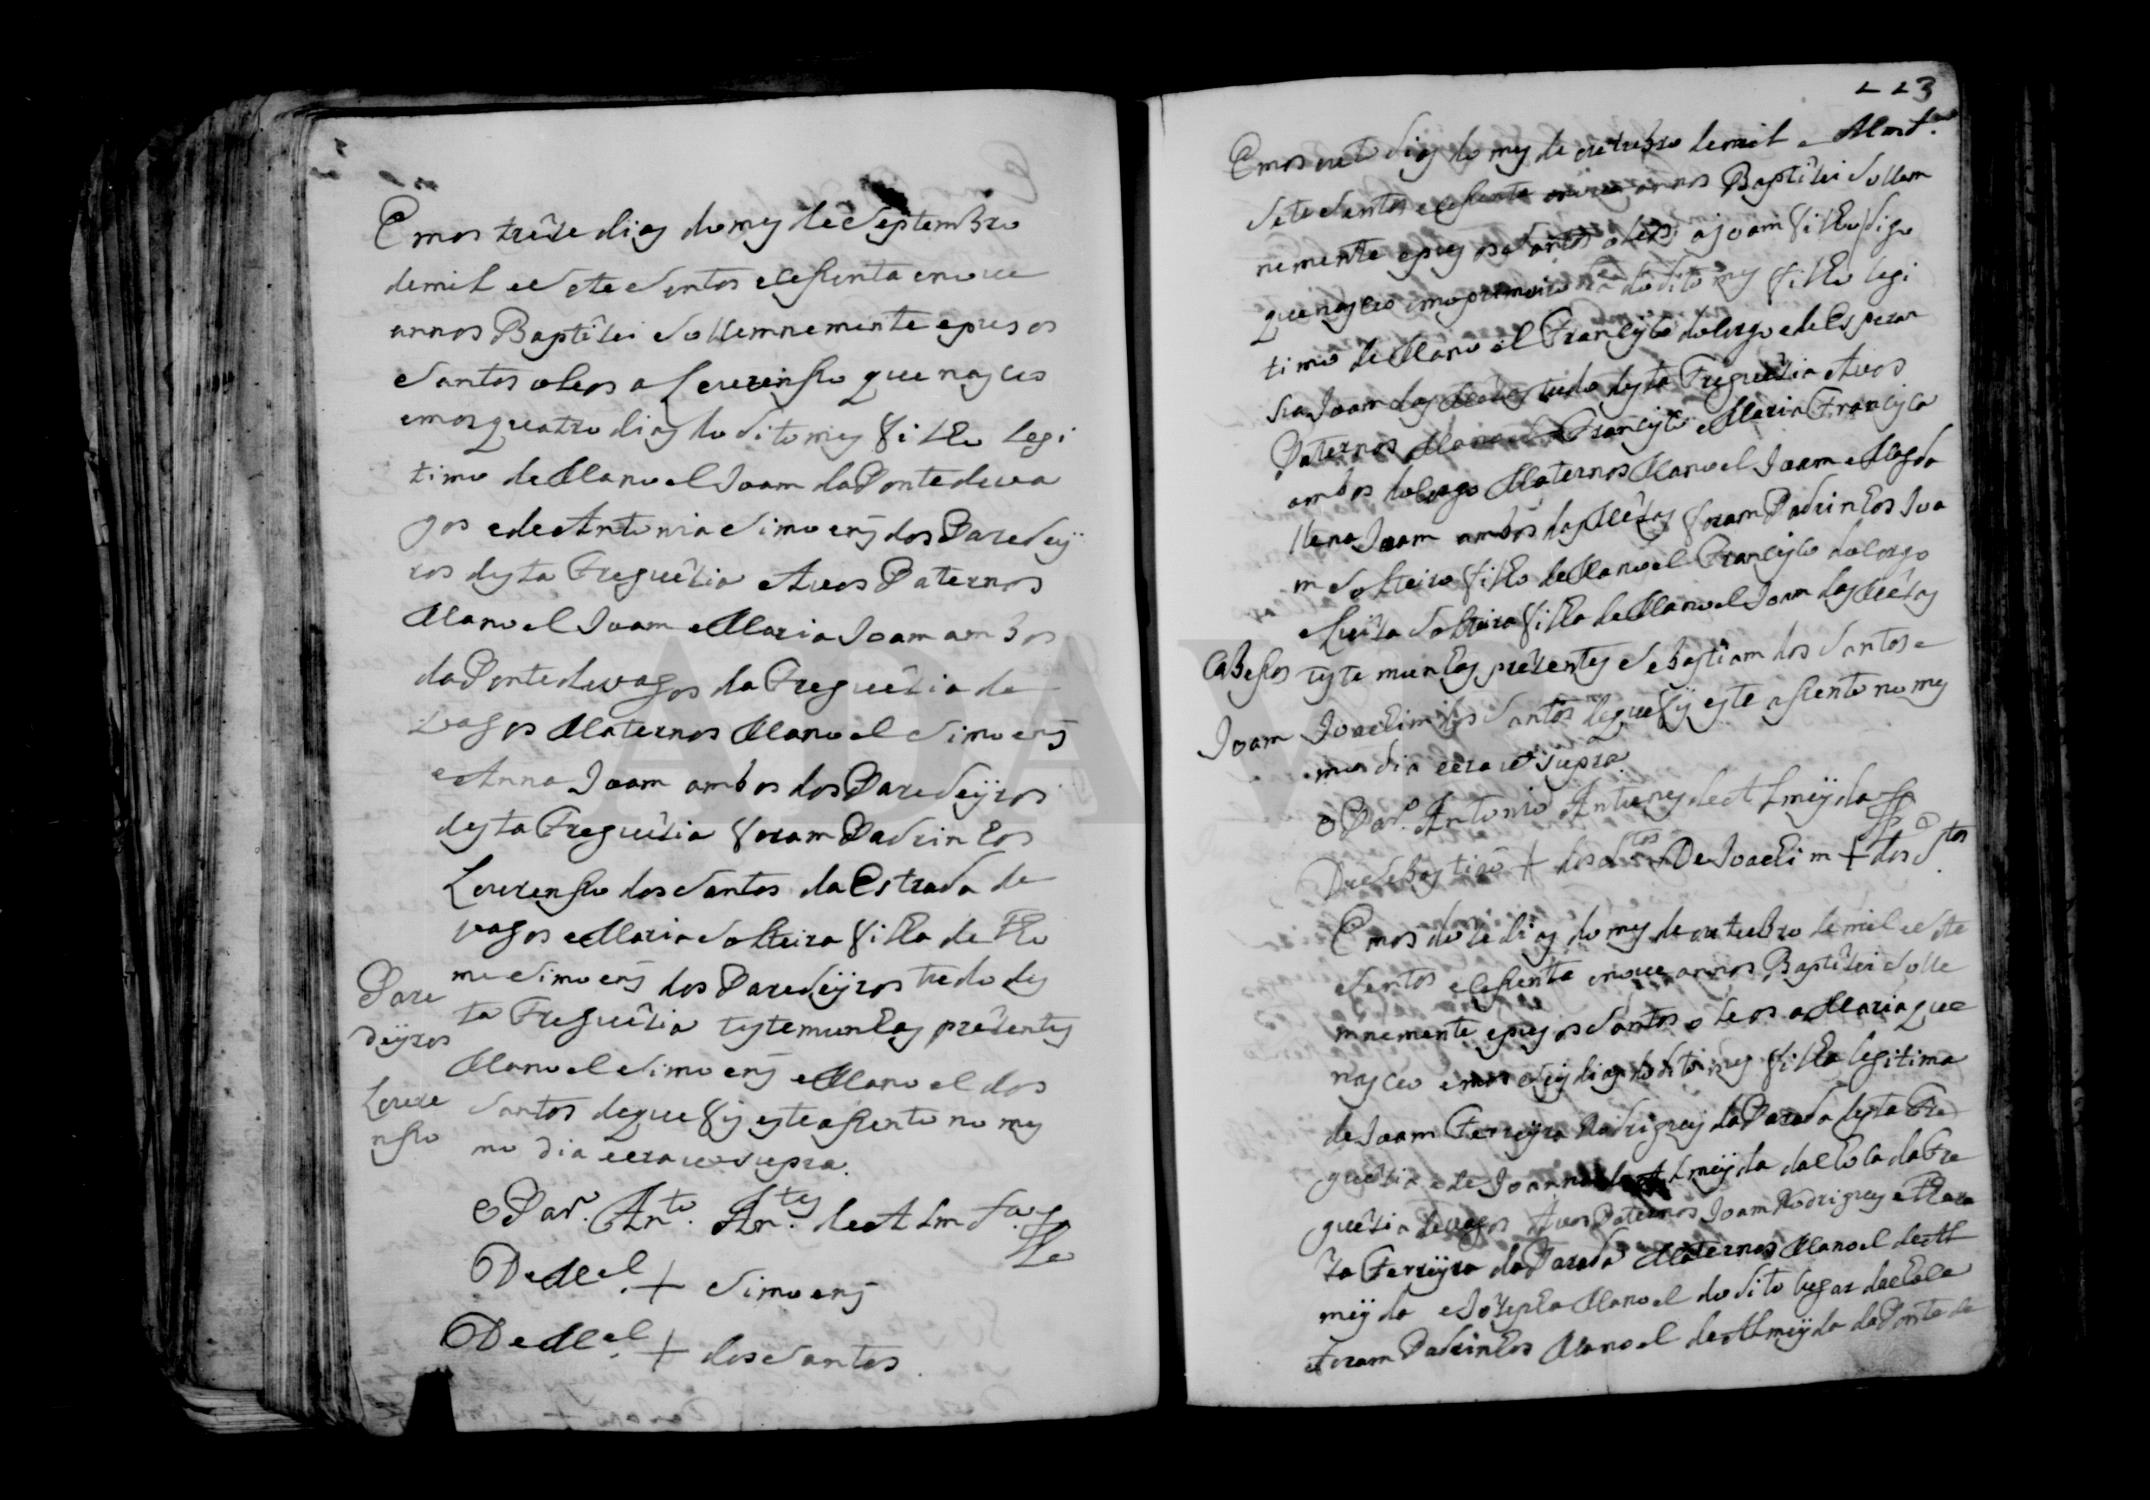 Em os treze dias do mes de Septembro
de mil e sete sentos e cessenta e nove
annos Baptizei sollemnemente e pus os
santos oleos a Lourensso que nasceo
em os quatro dias do dito mes filho legi
timo de Manoel Joam da Ponte de va
gos e de Antonia Simoens dos Paredey
ros desta Freguezia Avos Paternos
Manoel Joam e Maria Joam ambos
da Ponte de vagos da Freguezia de
vagos Maternos Manoel Simoens
e Anna Joam ambos dos Paredeyros
desta Freguezia foram Padrinhos
Lourensso dos Santos da Estrada de
vagos e Maria Solteira filha de Tho
me Simoens dos Paredeyros tudo des
ta Freguezia testemunhas prezentes
Manoel Simoens e Manoel dos
Santos de que fis este assento no mes
mo dia e era ut supra.
Pare
deyros
Loure
nsso
O Par.º Ant.º An.tes de Alm.da
De M.el + Simoens
De M.el + dos Santos
113
Em os outo dias do mes de outubro de mil e
sete sentos e cessenta e nove annos Baptizei sollem
nemente e pus os santos oleos a Joam filho digo
que nasceo em o primeiro do dito mes filho legi
timo de Manoel Francisco do Lago e de Esperan
sa Joam das Mezas tudo desta Freguezia Avos
Paternos Manoel Francisco e Maria Francisca
ambos do Lago Maternos Manoel Joam e Magda
llena Joam ambos das Mezas foram Padrinhos Joa
m Solteiro filho de Manoel Francisco do Lago
e Luiza Solteira filha de Manoel Joam das Mezas
testemunhas prezentes Sebastiam dos Santos e
Joachim dos Santos de que fis este assento no mes
mo dia e era ut supra
Cabessos
Joam
O Par.º Antonio Antunes de Almeyda
De Sebastião + dos S.tos De Joachim + dos S.tos
Em os doze dias do mes de outubro de mil e sete
sentos e cessenta e nove annos Baptizei solle
mnemente e pus os santos oleos a Maria que
nasceo em os seis dias do dito mes filha legitima
de Joam Ferreyra Rodrigues da Parada desta Fre
guezia e de Joanna de Almeyda da da Fre
guezia de vagos Avos Paternos Joam Rodrigues e There
za Ferreyra da Parada Maternos Manoel de Al
meyda e Jozepha Manoel do dito lugar
e foram Padrinhos Manoel de Almeyda da Ponte de
ADAV